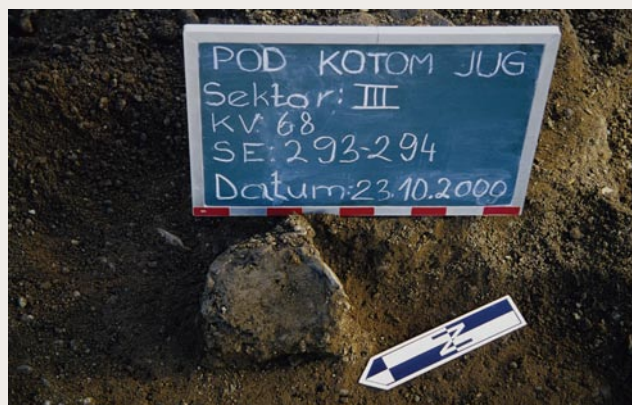 POD KOTOM JUG
Sektor: III
KV: 68
SE: 293-294
Datum: 23.10.2000
N